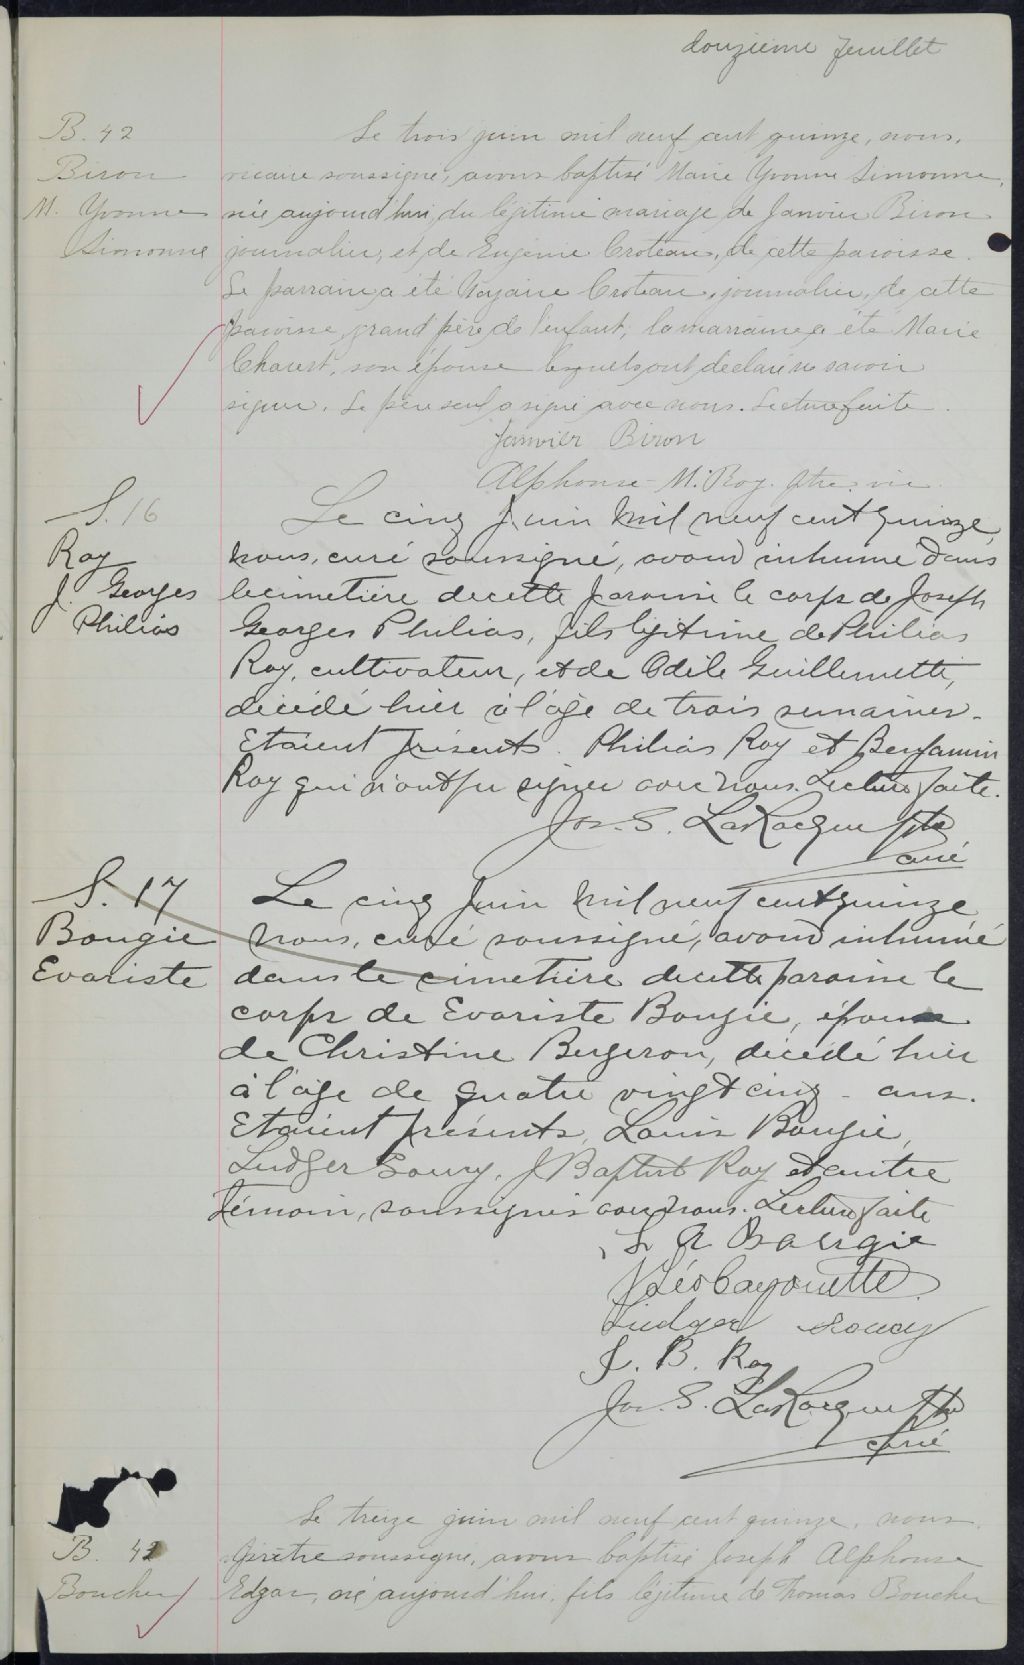 douzième feuillet
B. 42
Biron
M. Yvonne
Simonne
Le trois juin mil neuf cent quinze, nous,
vicaire soussigné, avons baptisé Marie Yvonne Simonne,
née aujourd'hui, du légitime mariage de Janvier Biron
journalier, et de Eugénie Croteau, de cette paroisse.
Le parrain a été Croteau, journalier, de cette
paroisse, grand père de l'enfant; la marraine a été Marie
Charest, son épouse lesquels ont déclaré ne savoir
signer. Le père seul a signé avec nous. Lecture faite.
Janvier Biron
Alphonse M. Roy. ptre. vic.
S. 16
Roy
J. Georges
Philias
Le cinq Juin mil neuf cent quinze,
nous, curé soussigné, avons inhumé dans
le cimetière de cette paroisse le corps de Joseph
Georges Philias, fils légitime de Philias
Roy, cultivateur, et de Odile Guillemette,
décédé hier à l'âge de trois semaines.
Etaient présents. Philias Roy et Benjamin
Roy qui n'ont pu signer avec nous. Lecture faite.
Jos. S. LaRocque Ptre
Curé
S. 17
Bougie
Evariste
Le cinq Juin mil neuf cent quinze
nous, curé soussigné, avons inhumé
dans le cimetière de cette paroisse le
corps de Evariste Bougie, époux
de Christine Bergeron, décédé hier
à l'âge de quatre vingt cinq - ans.
Etaient présents, Louis Bougie,
Ludger Soucy, J Baptist Roy et autre
témoin, soussignés avec nous. Lecture faite
L A Bourgie
J Léo Cayouette
Ludger Soucy
J. B. Roy
Jos. S. LaRocque Ptre
Curé
B. 42
Boucher
Le treize juin mil neuf cent quinze, nous,
prêtre soussigné, avons baptisé Joseph Alphonse
Edgar, né aujourd'hui, fils légitime de Thomas Boucher